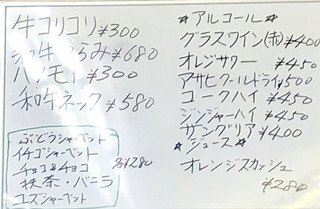 牛コリコリ ¥300
和牛 うらみ ¥680
ハツモト ¥300
和牛ネック ¥580
ぶどうシャーベット
イチゴシャーベット
チョコ&チョコ
抹茶・バニラ
ユズシャーベット
各¥280
☆アルコール☆
グラスワイン(赤) ¥400
オレンジサワー ¥450
アサヒクールドライ ¥500
コークハイ ¥450
ジンジャーハイ ¥450
サングリア ¥400
☆ジュース☆
オレンジスカッシュ
¥280